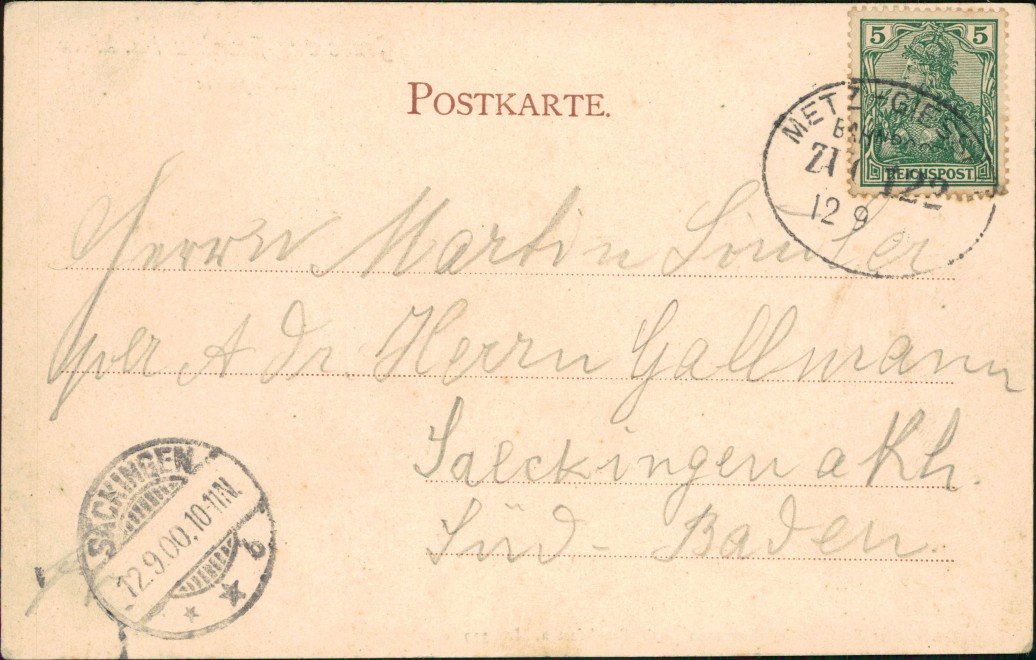 5 5
POSTKARTE.
METZ
REICHSPOST
122
12 9
Herrn Martin
per Adr. Herrn Gallmann
Saeckingen a Rh.
Süd-Baden.
SÄCKINGEN
12.9.00.10-11N.